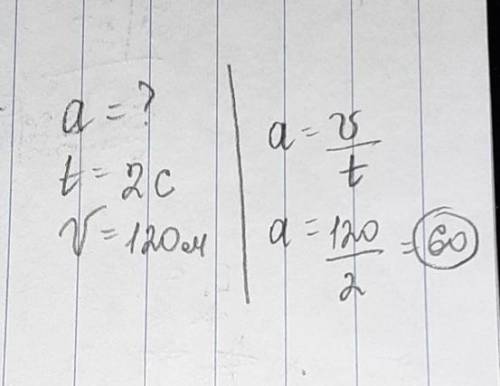 a = ?
t = 2с
v = 120м
a = v/t
a = 120/2 = 60